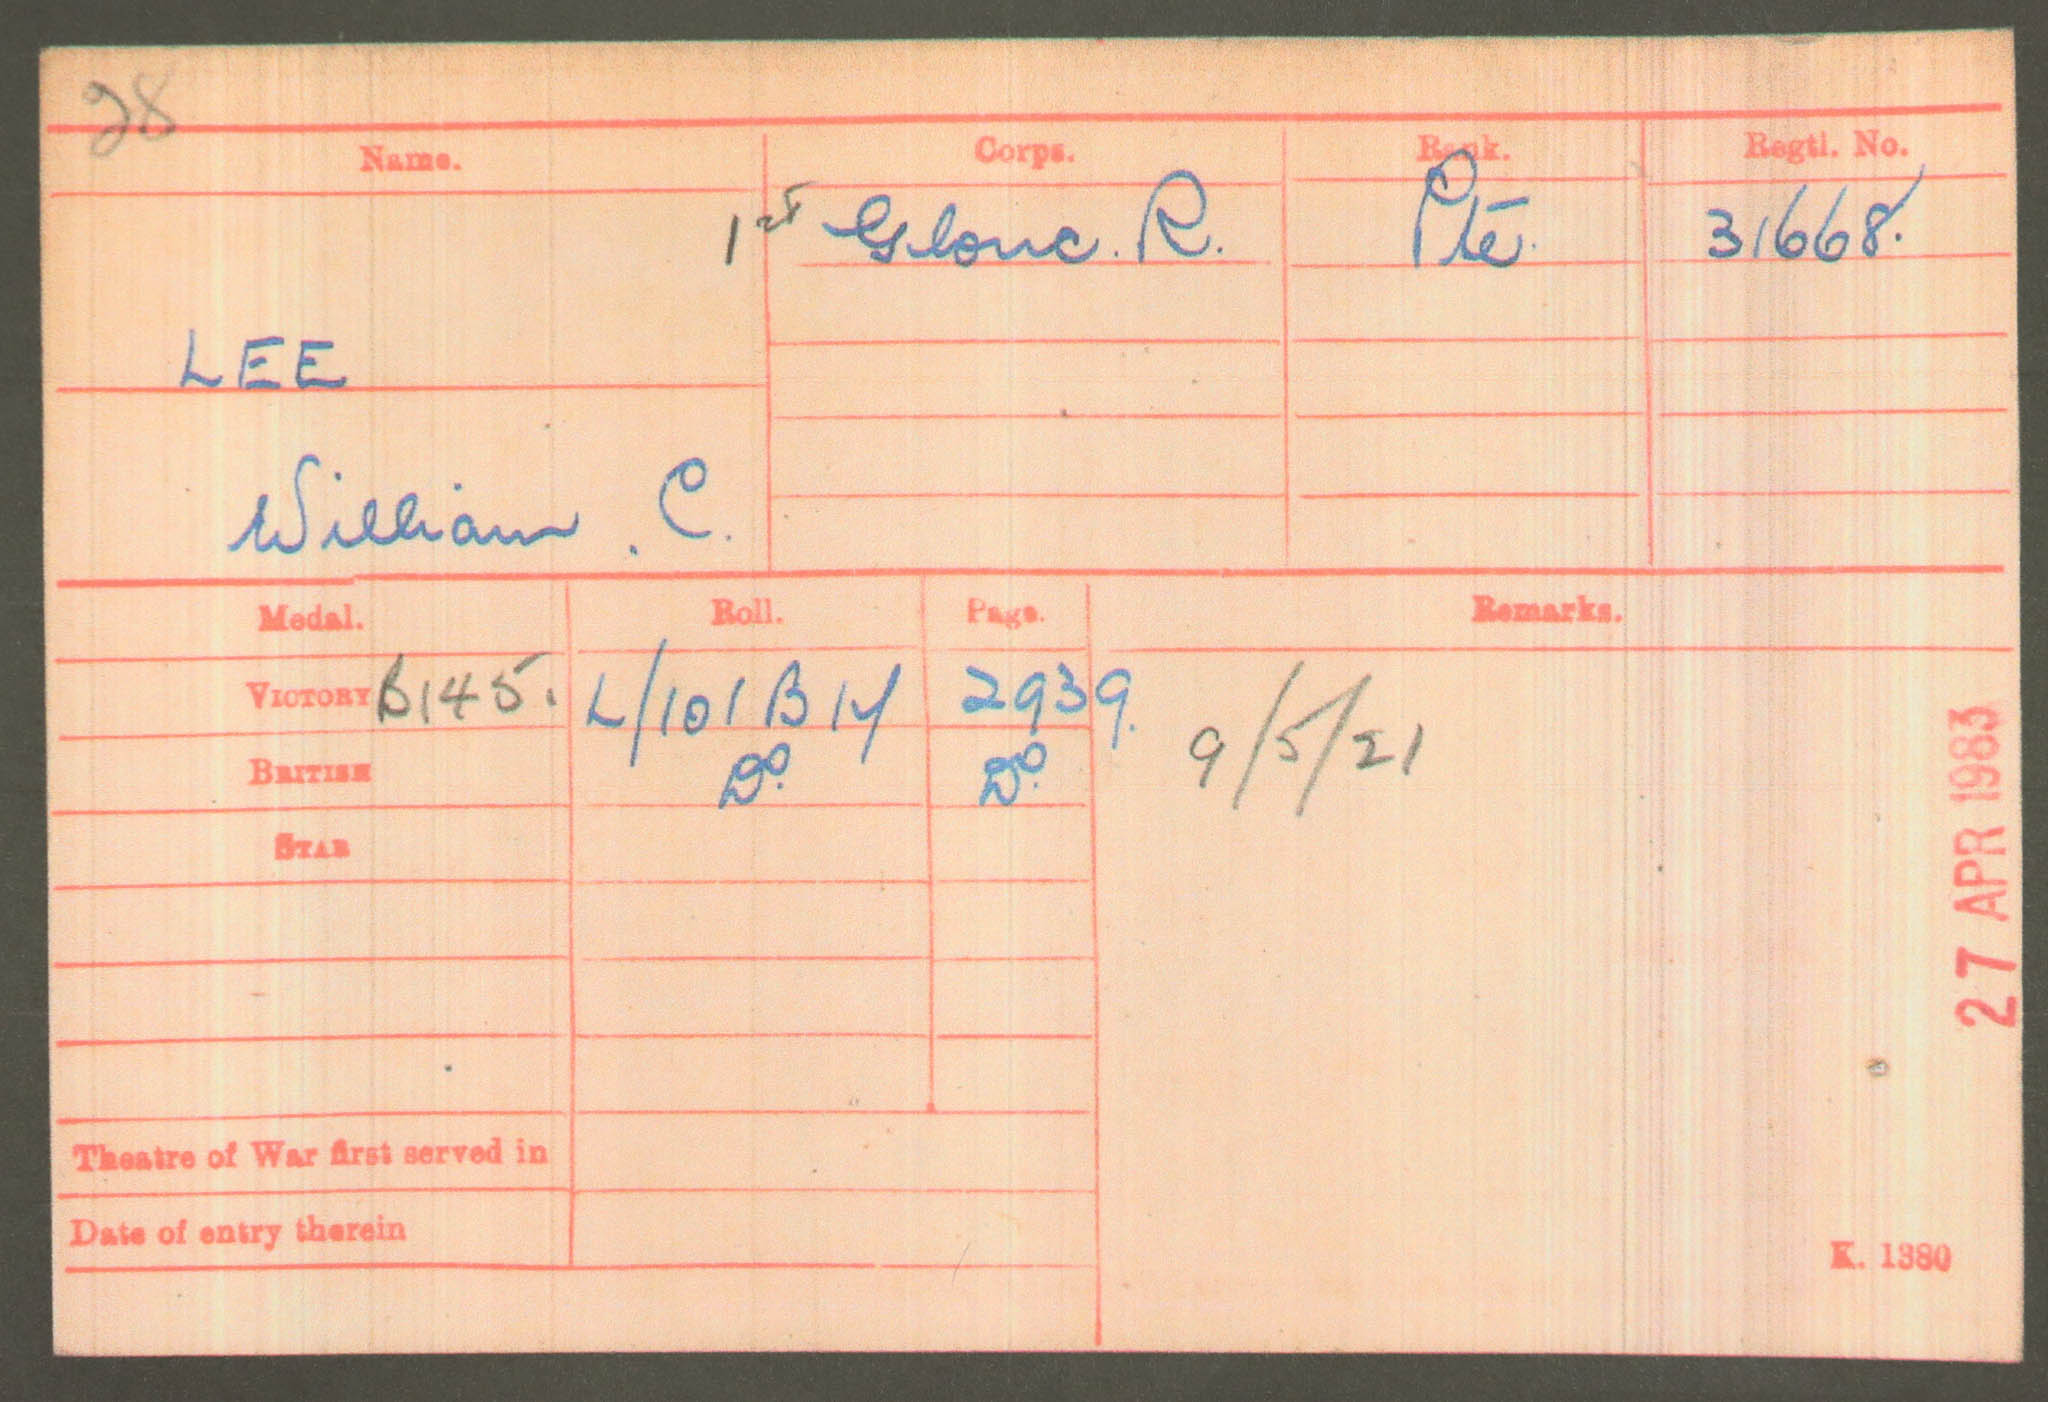 28
Name. Corps. Rank. Regtl. No.
1st Glouc. R. Pte. 31668.
LEE
William . C.
Medal. Roll. Page. Remarks.
VICTORY B145. L/101 B 2939.
BRITISH Do. Do. 9/5/21
STAR
27 APR 1983
Theatre of War first served in
Date of entry therein
K. 1380